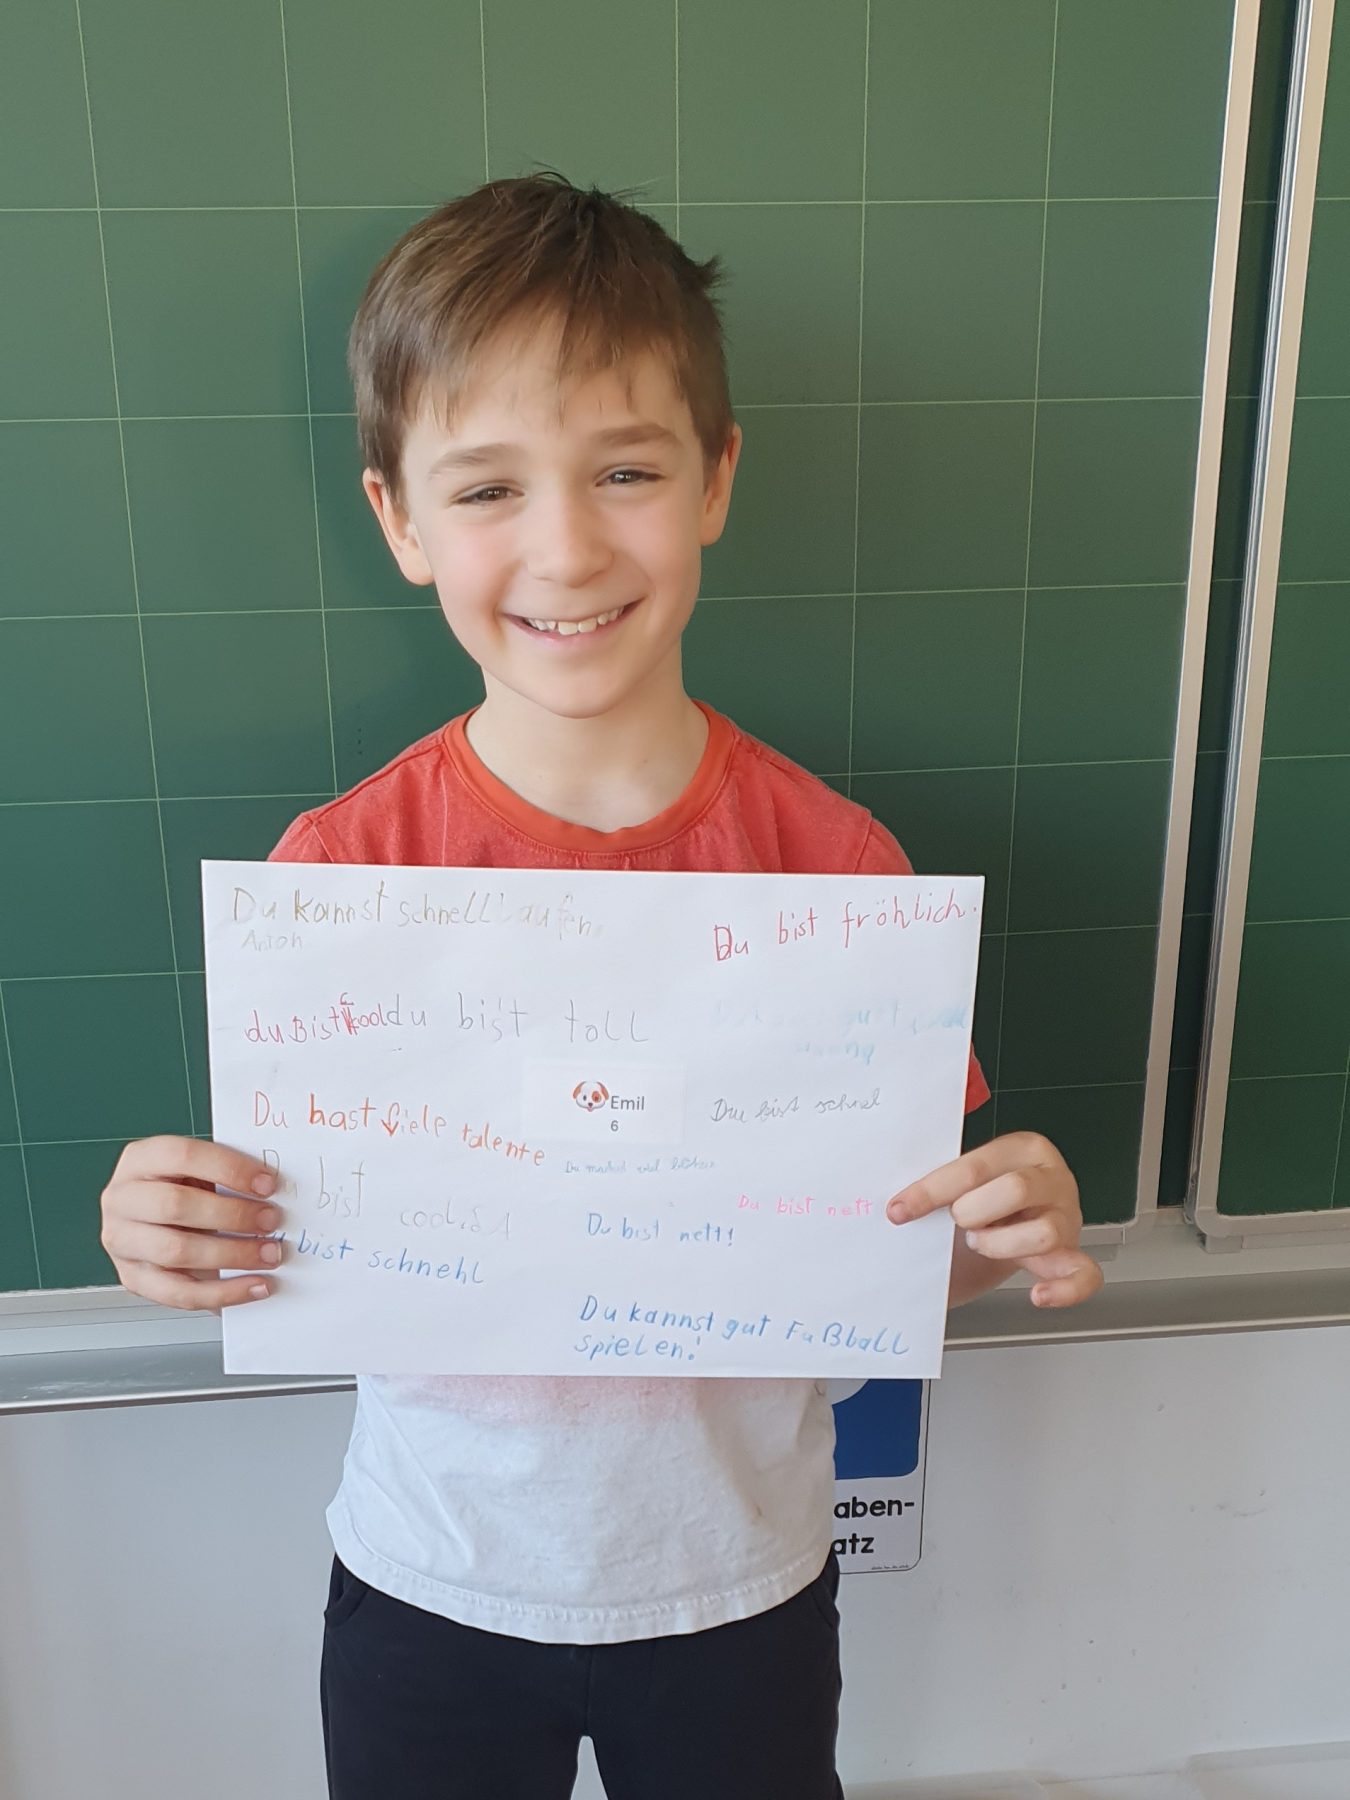 Du kannst schnell laufen
Anton
Du bist fröhlich.
du Bist cool
du bist toll
gut
Emil
6
Du hast fiele talente
Du bist schnel
Du bist
cool.
Du machst
Du bist nett
Du bist nett!
bist schnehl
Du kannst gut Fußball
spielen!
aben-
atz